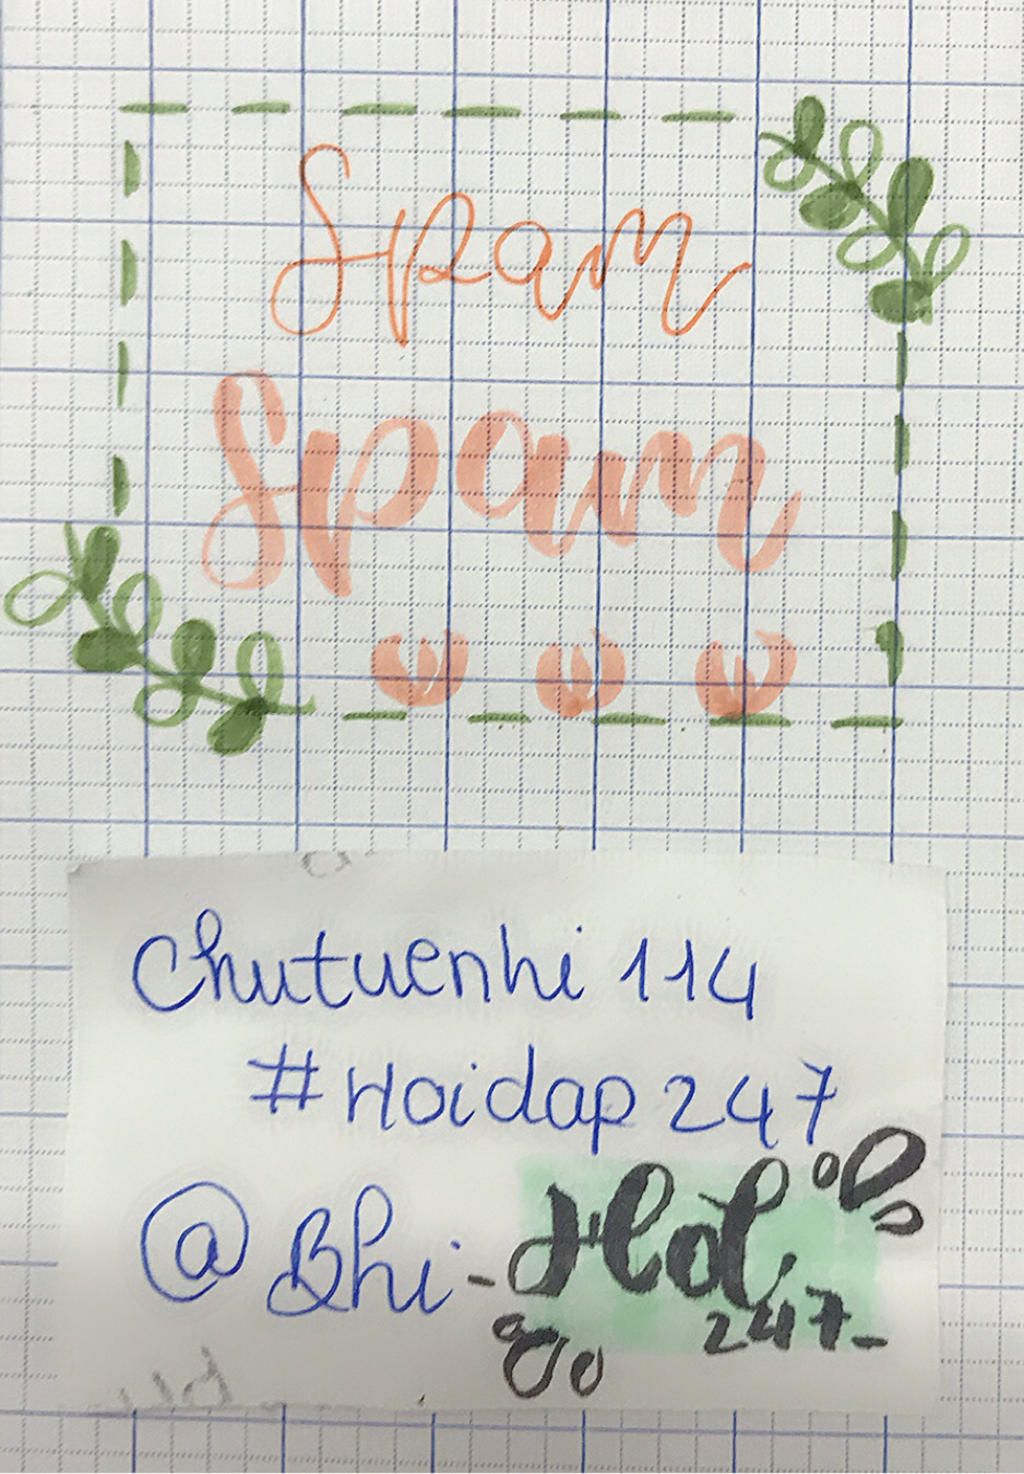 Spam
Spam
Chutuenhi 114
#Hoidap247
@Bhi-
247-